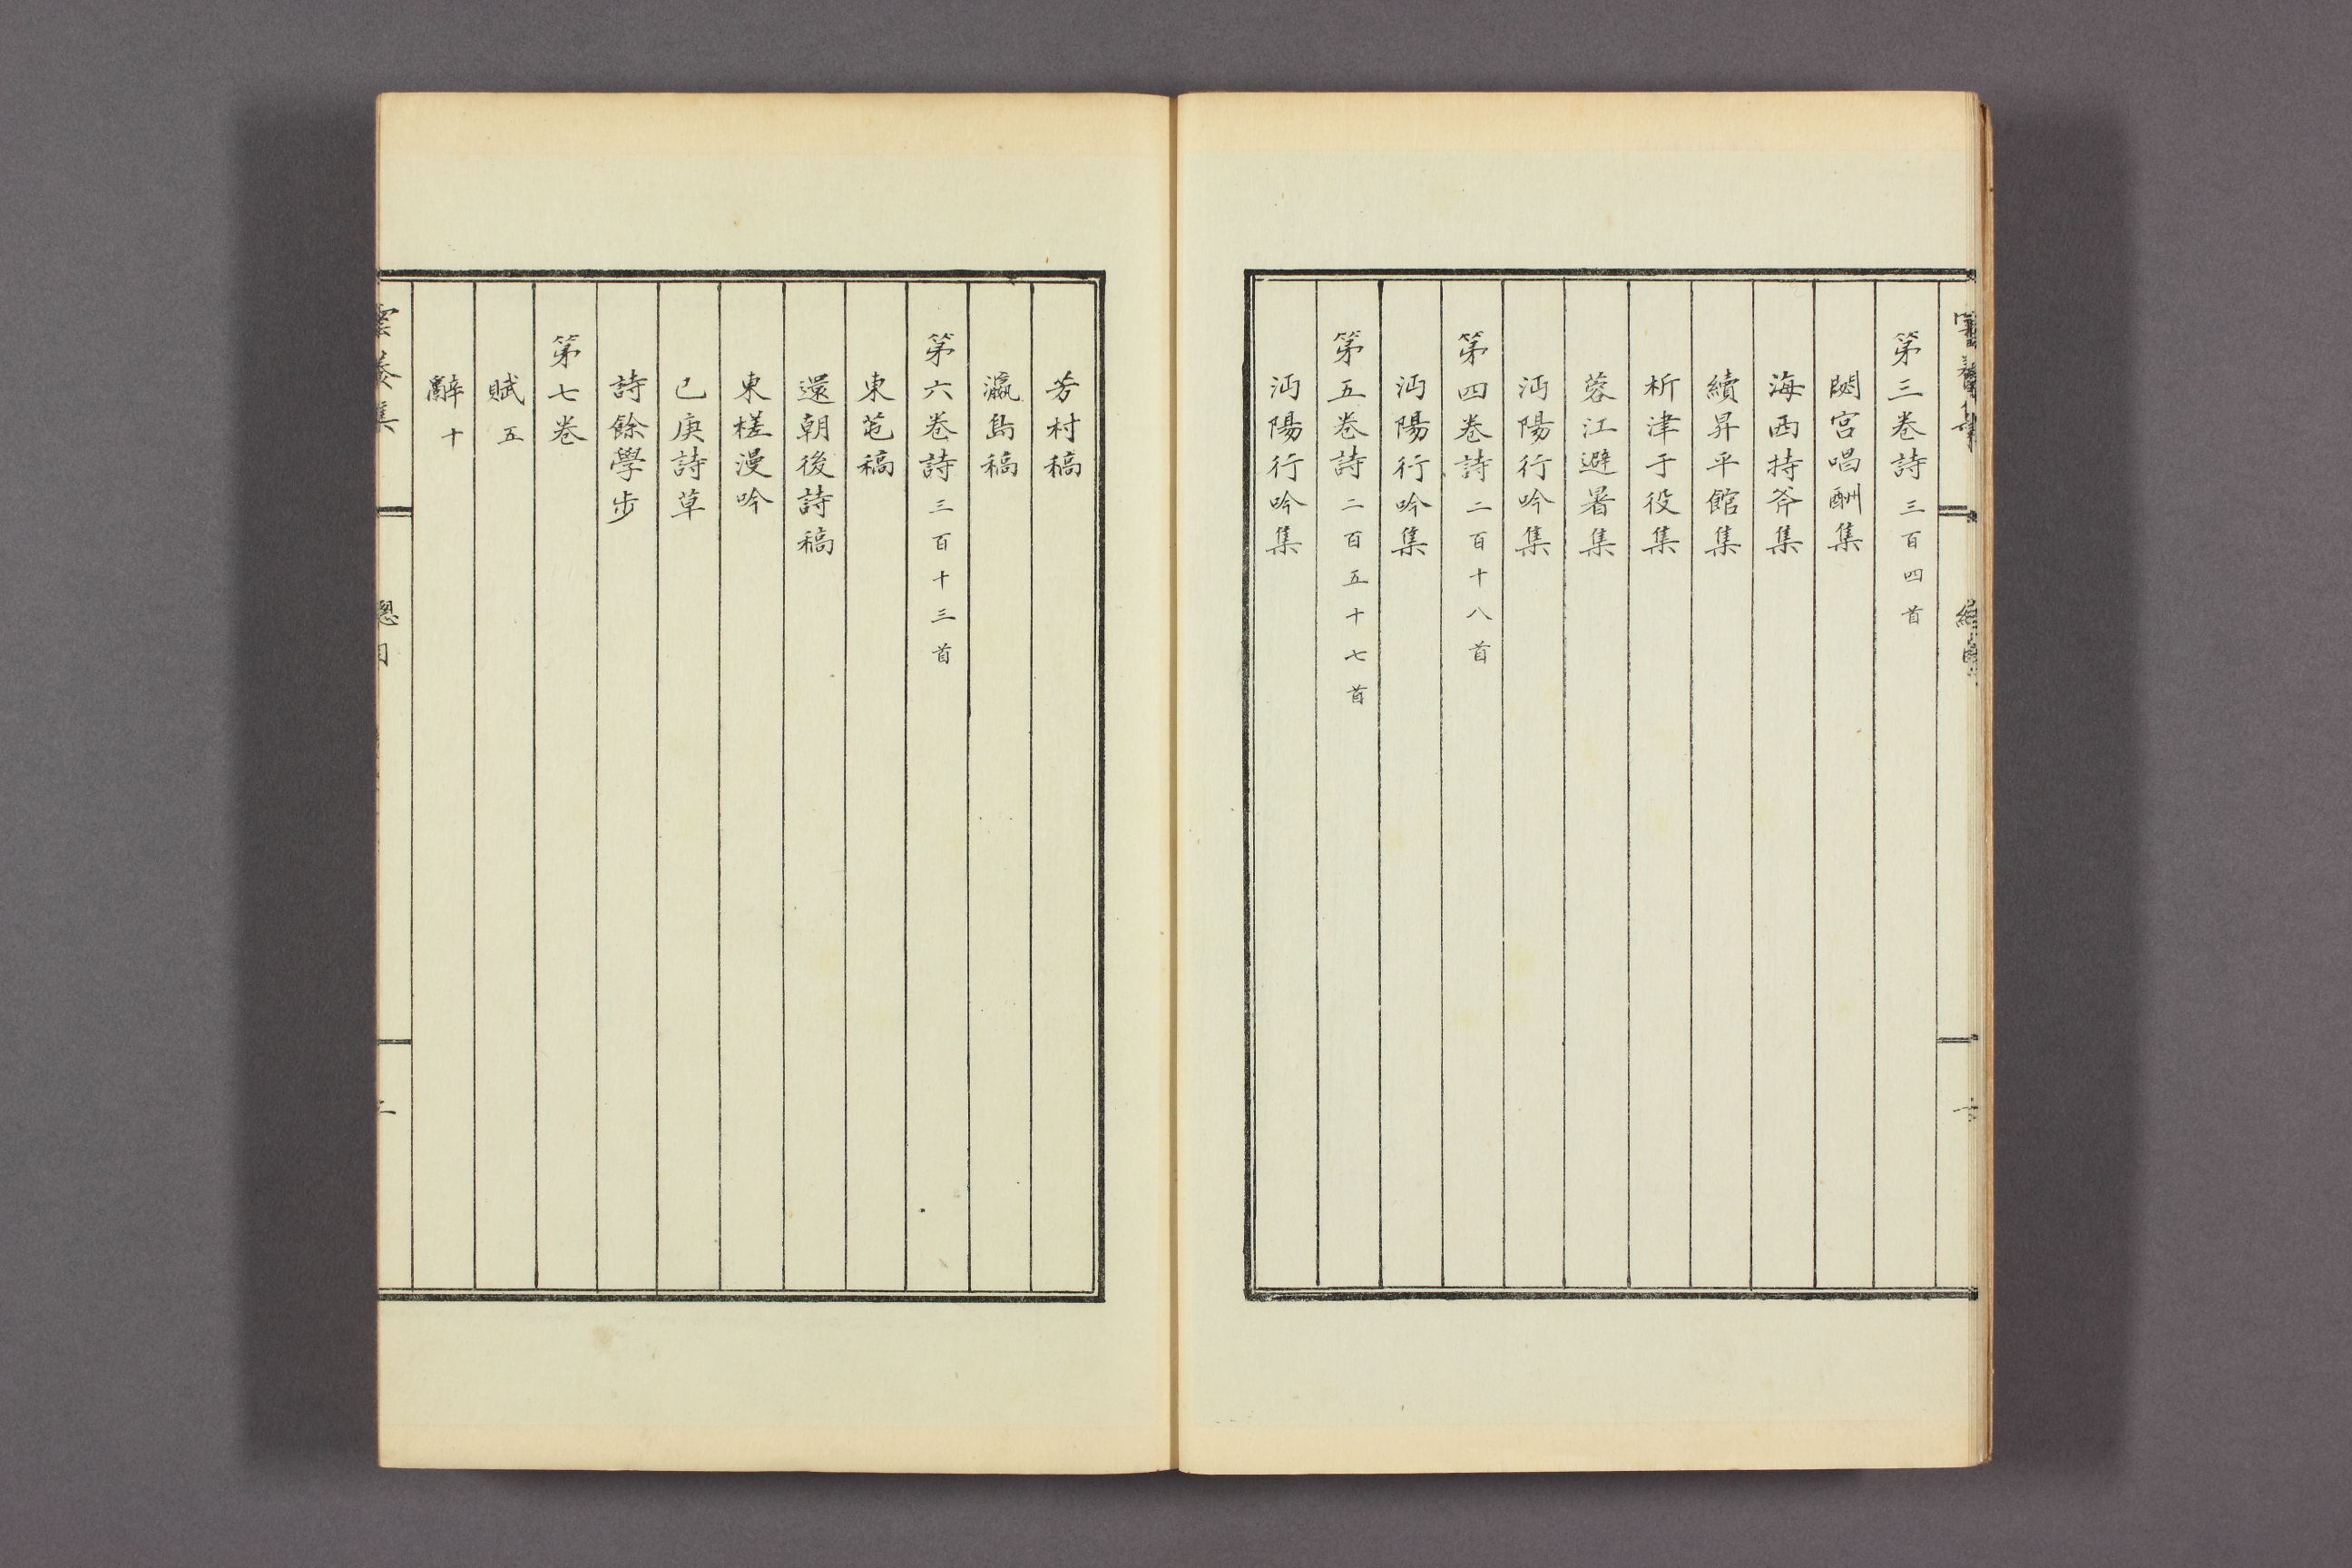 第三卷詩 三百四首
閟宮唱酬集
海西持斧集
續昇平館集
析津于役集
蓉江避暑集
沔陽行吟集
第四卷詩 二百十八首
沔陽行吟集
第五卷詩 二百五十七首
沔陽行吟集
芳村稿
瀛島稿
第六卷詩 三百十三首
東苑稿
還朝後詩稿
東槎漫吟
己庚詩草
詩餘學步
第七卷
賦 五
辭 十
雲養集 總目 二